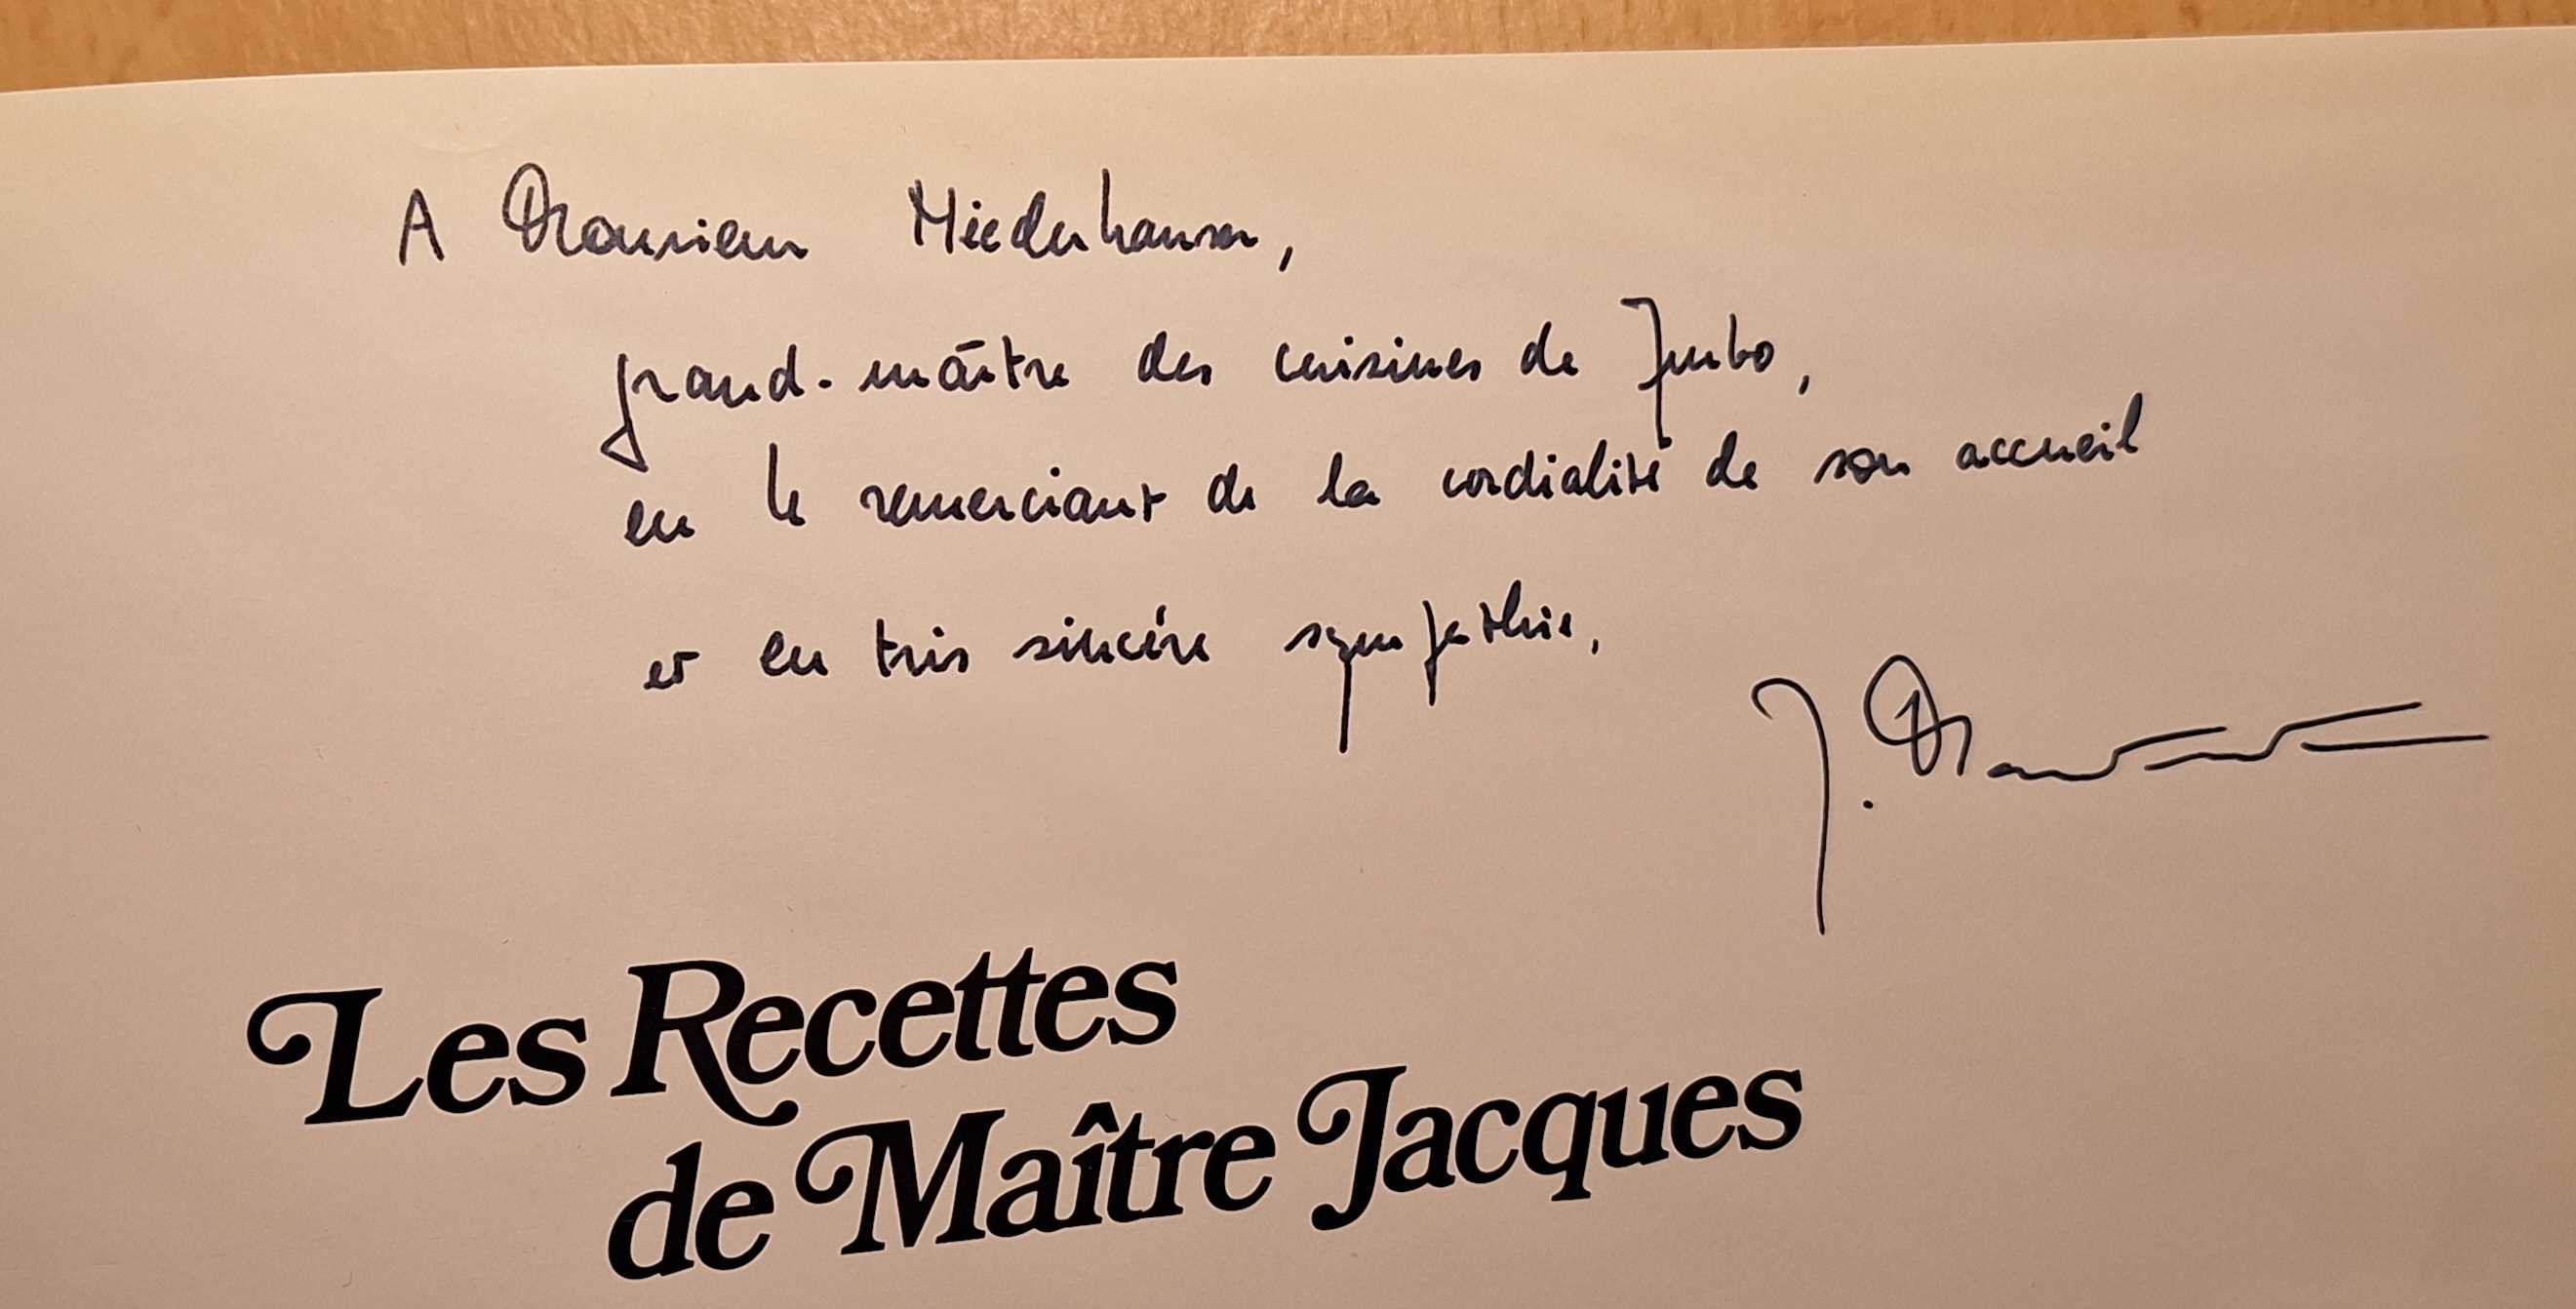 A Monsieur Niederhauser,
grand-maître des cuisines de Jumbo,
en le remerciant de la cordialité de son accueil
et en très sincère sympathie,
J.
Les Recettes
de Maître Jacques